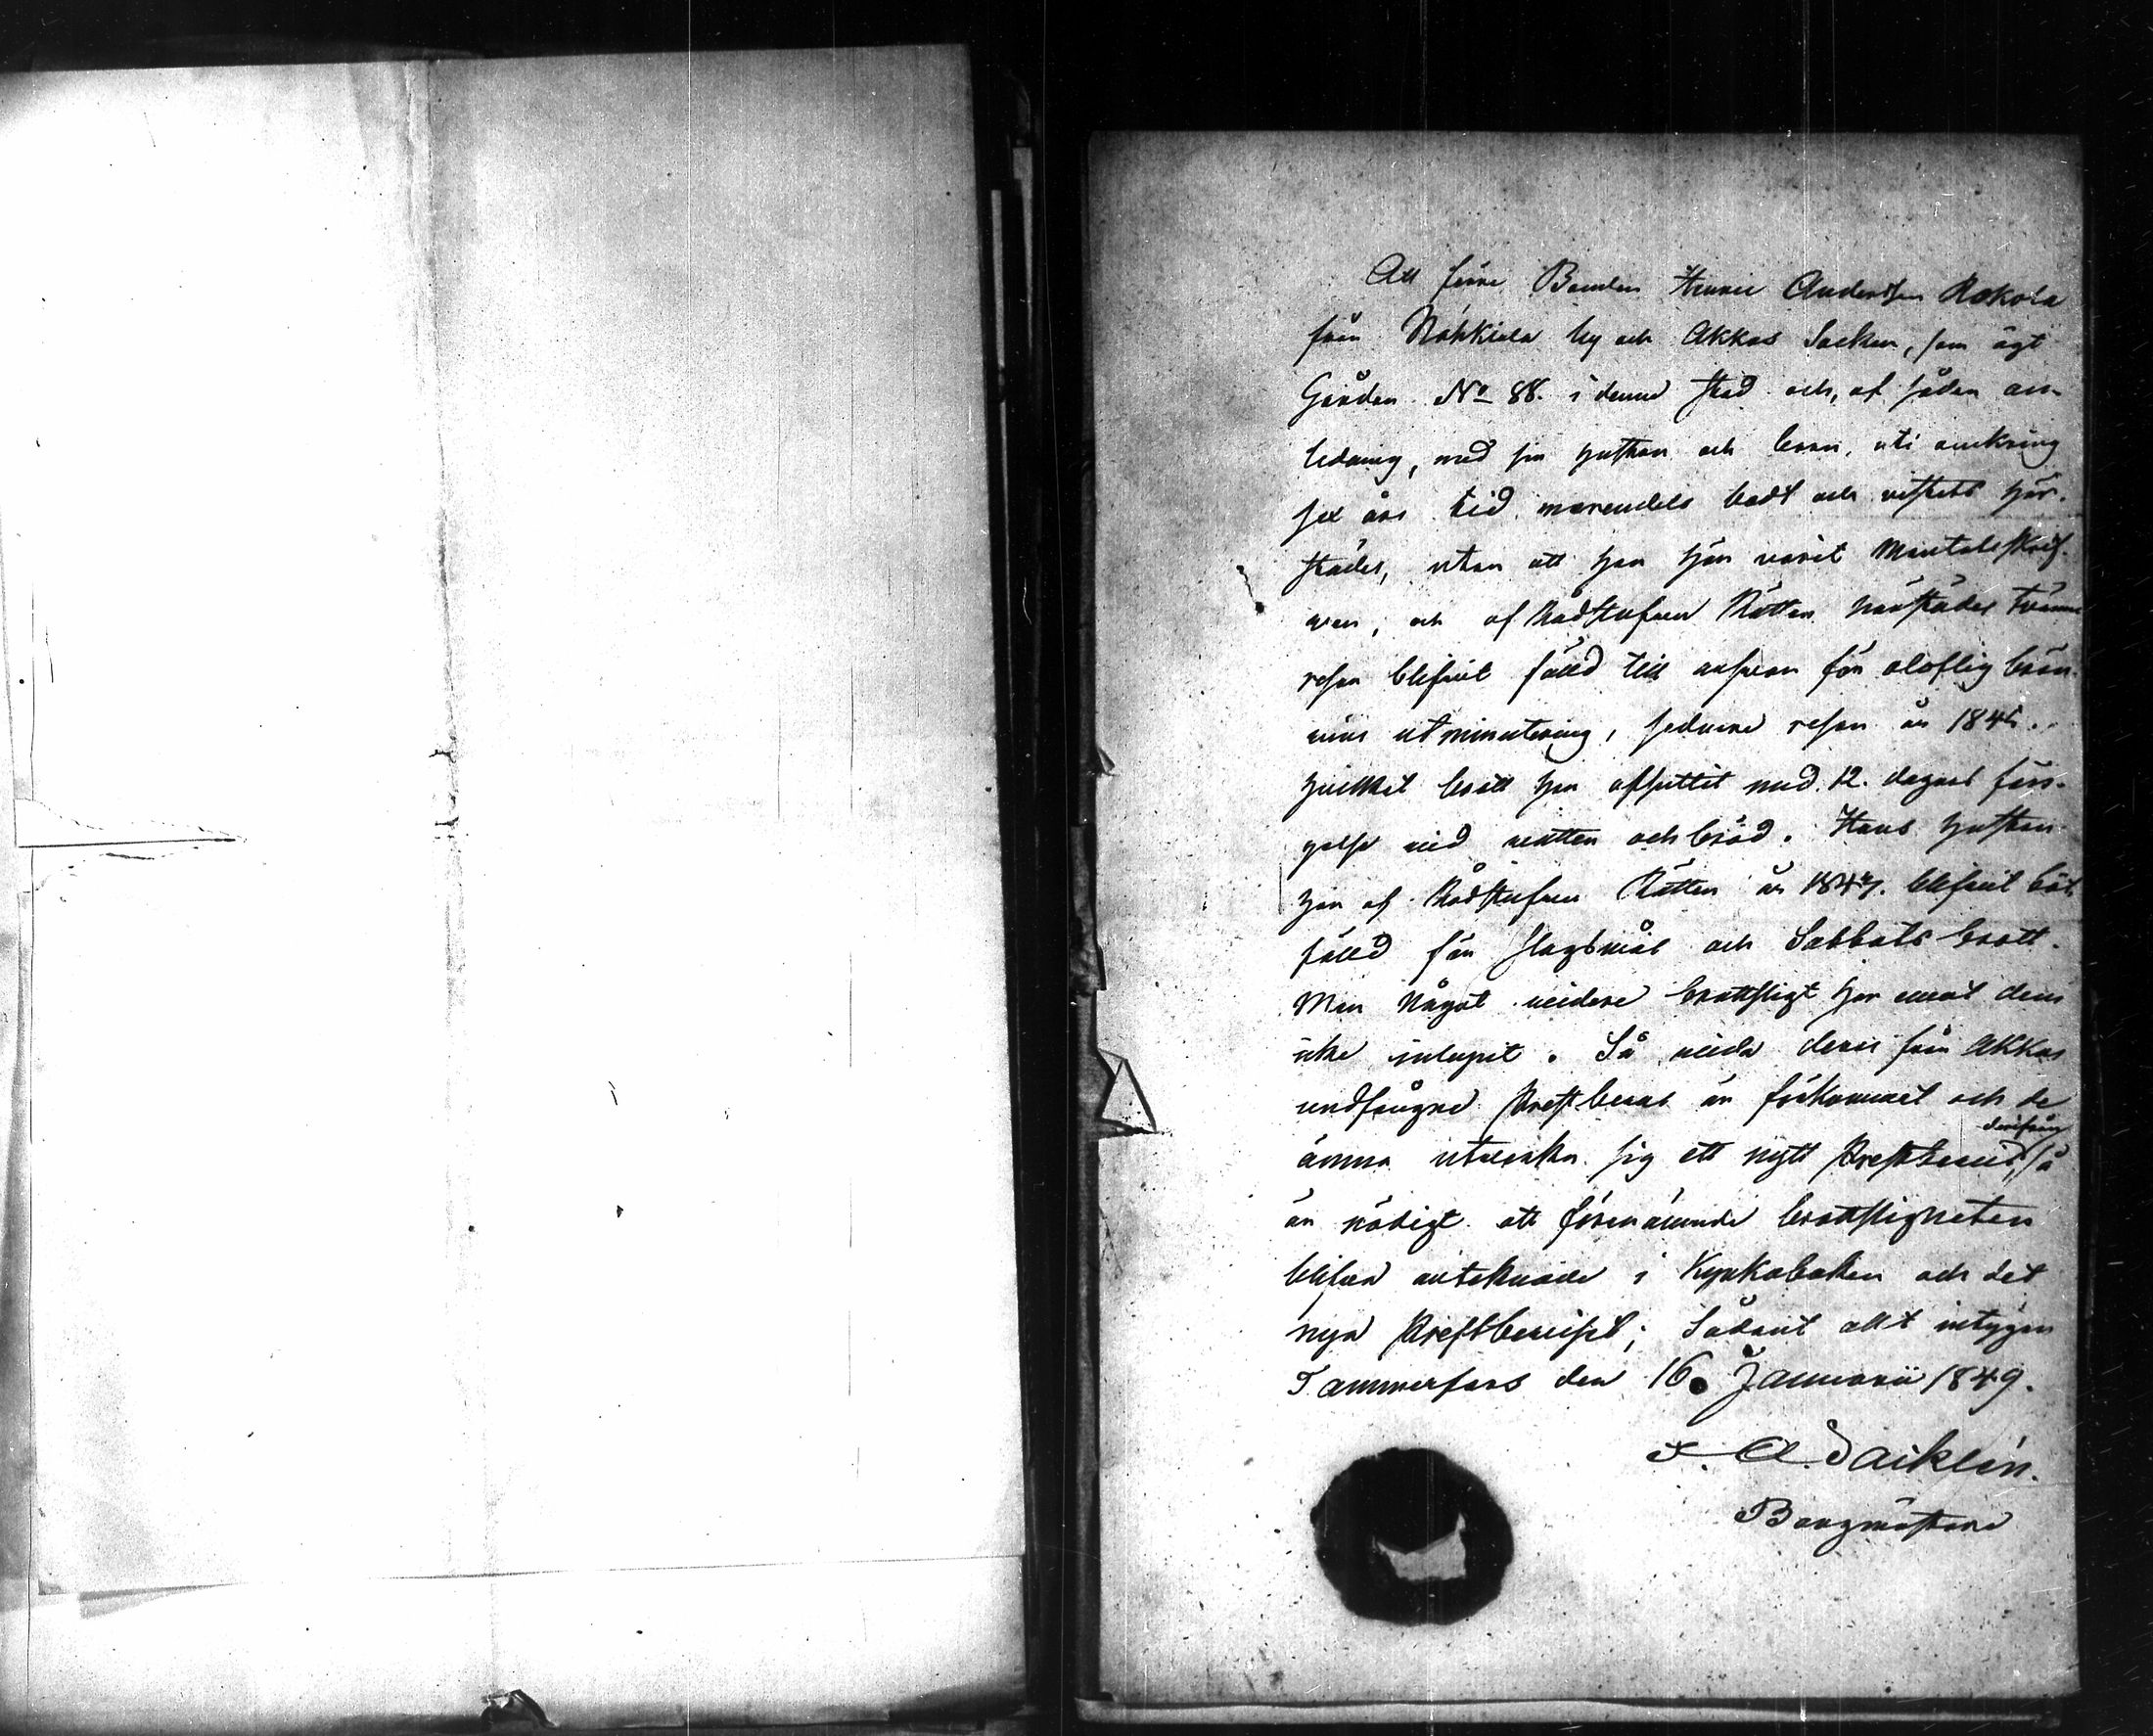 Att förre Bonden Henric Andersson Kokola
från Kåhkiala by och Akkas Socken, som ägt
Gården No 88. i denna stad och, af sådan an-
ledning, med sin hustru och barn, uti omkring
sex års tid merendels bodt och vistats här-
städes, utan att han här varit Mantalskrif-
ven, och af Rådstufvu Rätten härstädes tvänne
resor blifvit fälld till ansvar för oloflig brän-
vins utminutering, sednare resan år 1846.
hvilket brott han afsuttit med 12. dagars fän-
gelse vid vatten och bröd. Hans hustru
har af Rådstufvu Rätten år 1847. blifvit böt-
fälld för slagsmål och Sabbats brott.
Men något vidare brottsligt har emot dem
icke inlupit. Så vida deras från Akkas
undfångne Prestbevis är förkommet och de
ämna utverka sig ett nytt Prestbevis derifrån, så
är nödigt att förenämnde brottsligheten
blifva antecknade i Kyrkoboken och det
nya Prestbeviset; Sådant allt intygar
Tammerfors den 16. Januarii 1849.
F. A. Daiklén.
Borgmästare